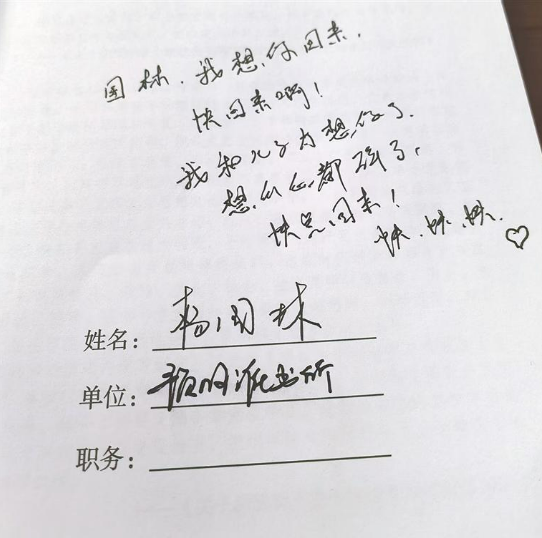 国林、我想你回来,
快回来啊!
我和儿子为想你了,
想你都疯了,
快点回来!
快、快、快、♡
姓名: 杨国林
单位: 派出所
职务: